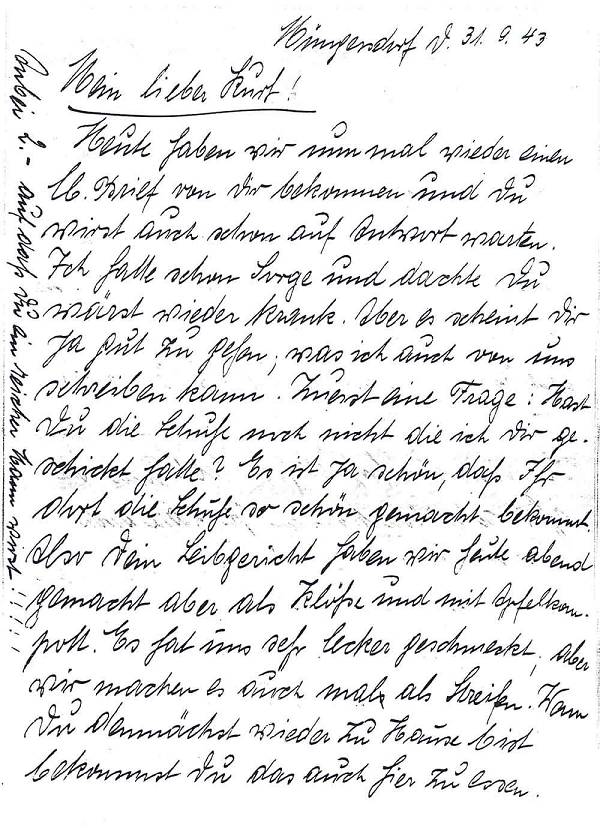 Müngersdorf d. 31. 9. 43
Mein lieber Kurt!
Heute haben wir nun mal wieder einen
lb. Brief von Dir bekommen und Du
wirst auch schon auf Antwort warten.
Ich hatte schon Sorge und dachte Du
wärst wieder krank. Aber es scheint Dir
ja gut zu gehen, was ich auch von uns
schreiben kann. Zuerst eine Frage: Hast
Du die Schuhe noch nicht die ich Dir ge-
schickt hatte? Es ist ja schön, daß Ihr
dort die Schuhe so schön gemacht bekommt
Also Dein Leibgericht haben wir heute abend
gemacht aber als Klöße und mit Apfelkom-
pott. Es hat uns sehr lecker geschmeckt, aber
wir machen es auch mal als Streifen. Wenn
Du demnächst wieder zu Hause bist
bekommst Du das auch hier zu essen.
Anbei 2.- auf daß Du ein reicher Mann wirst!!!!